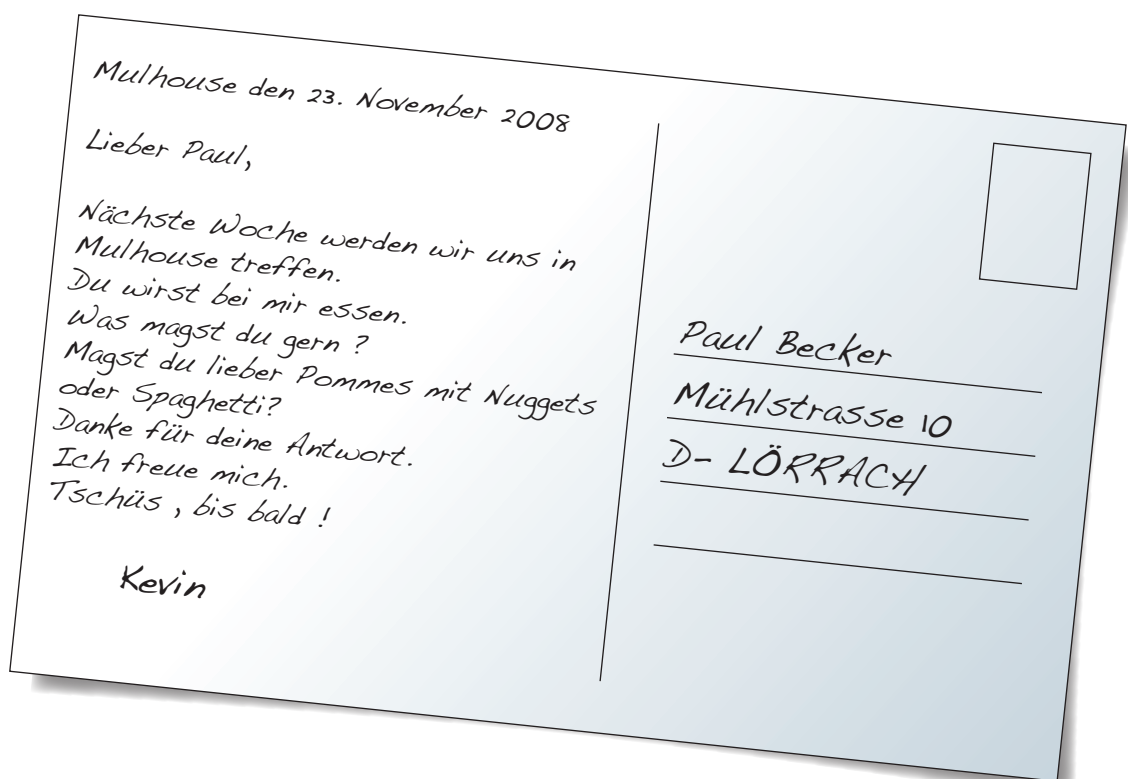 Mulhouse den 23. November 2008
Lieber Paul,
Nächste Woche werden wir uns in
Mulhouse treffen.
Du wirst bei mir essen.
Was magst du gern ?
Magst du lieber Pommes mit Nuggets
oder Spaghetti?
Danke für deine Antwort.
Ich freue mich.
Tschüs , bis bald !
Kevin
Paul Becker
Mühlstrasse 10
D- LÖRRACH